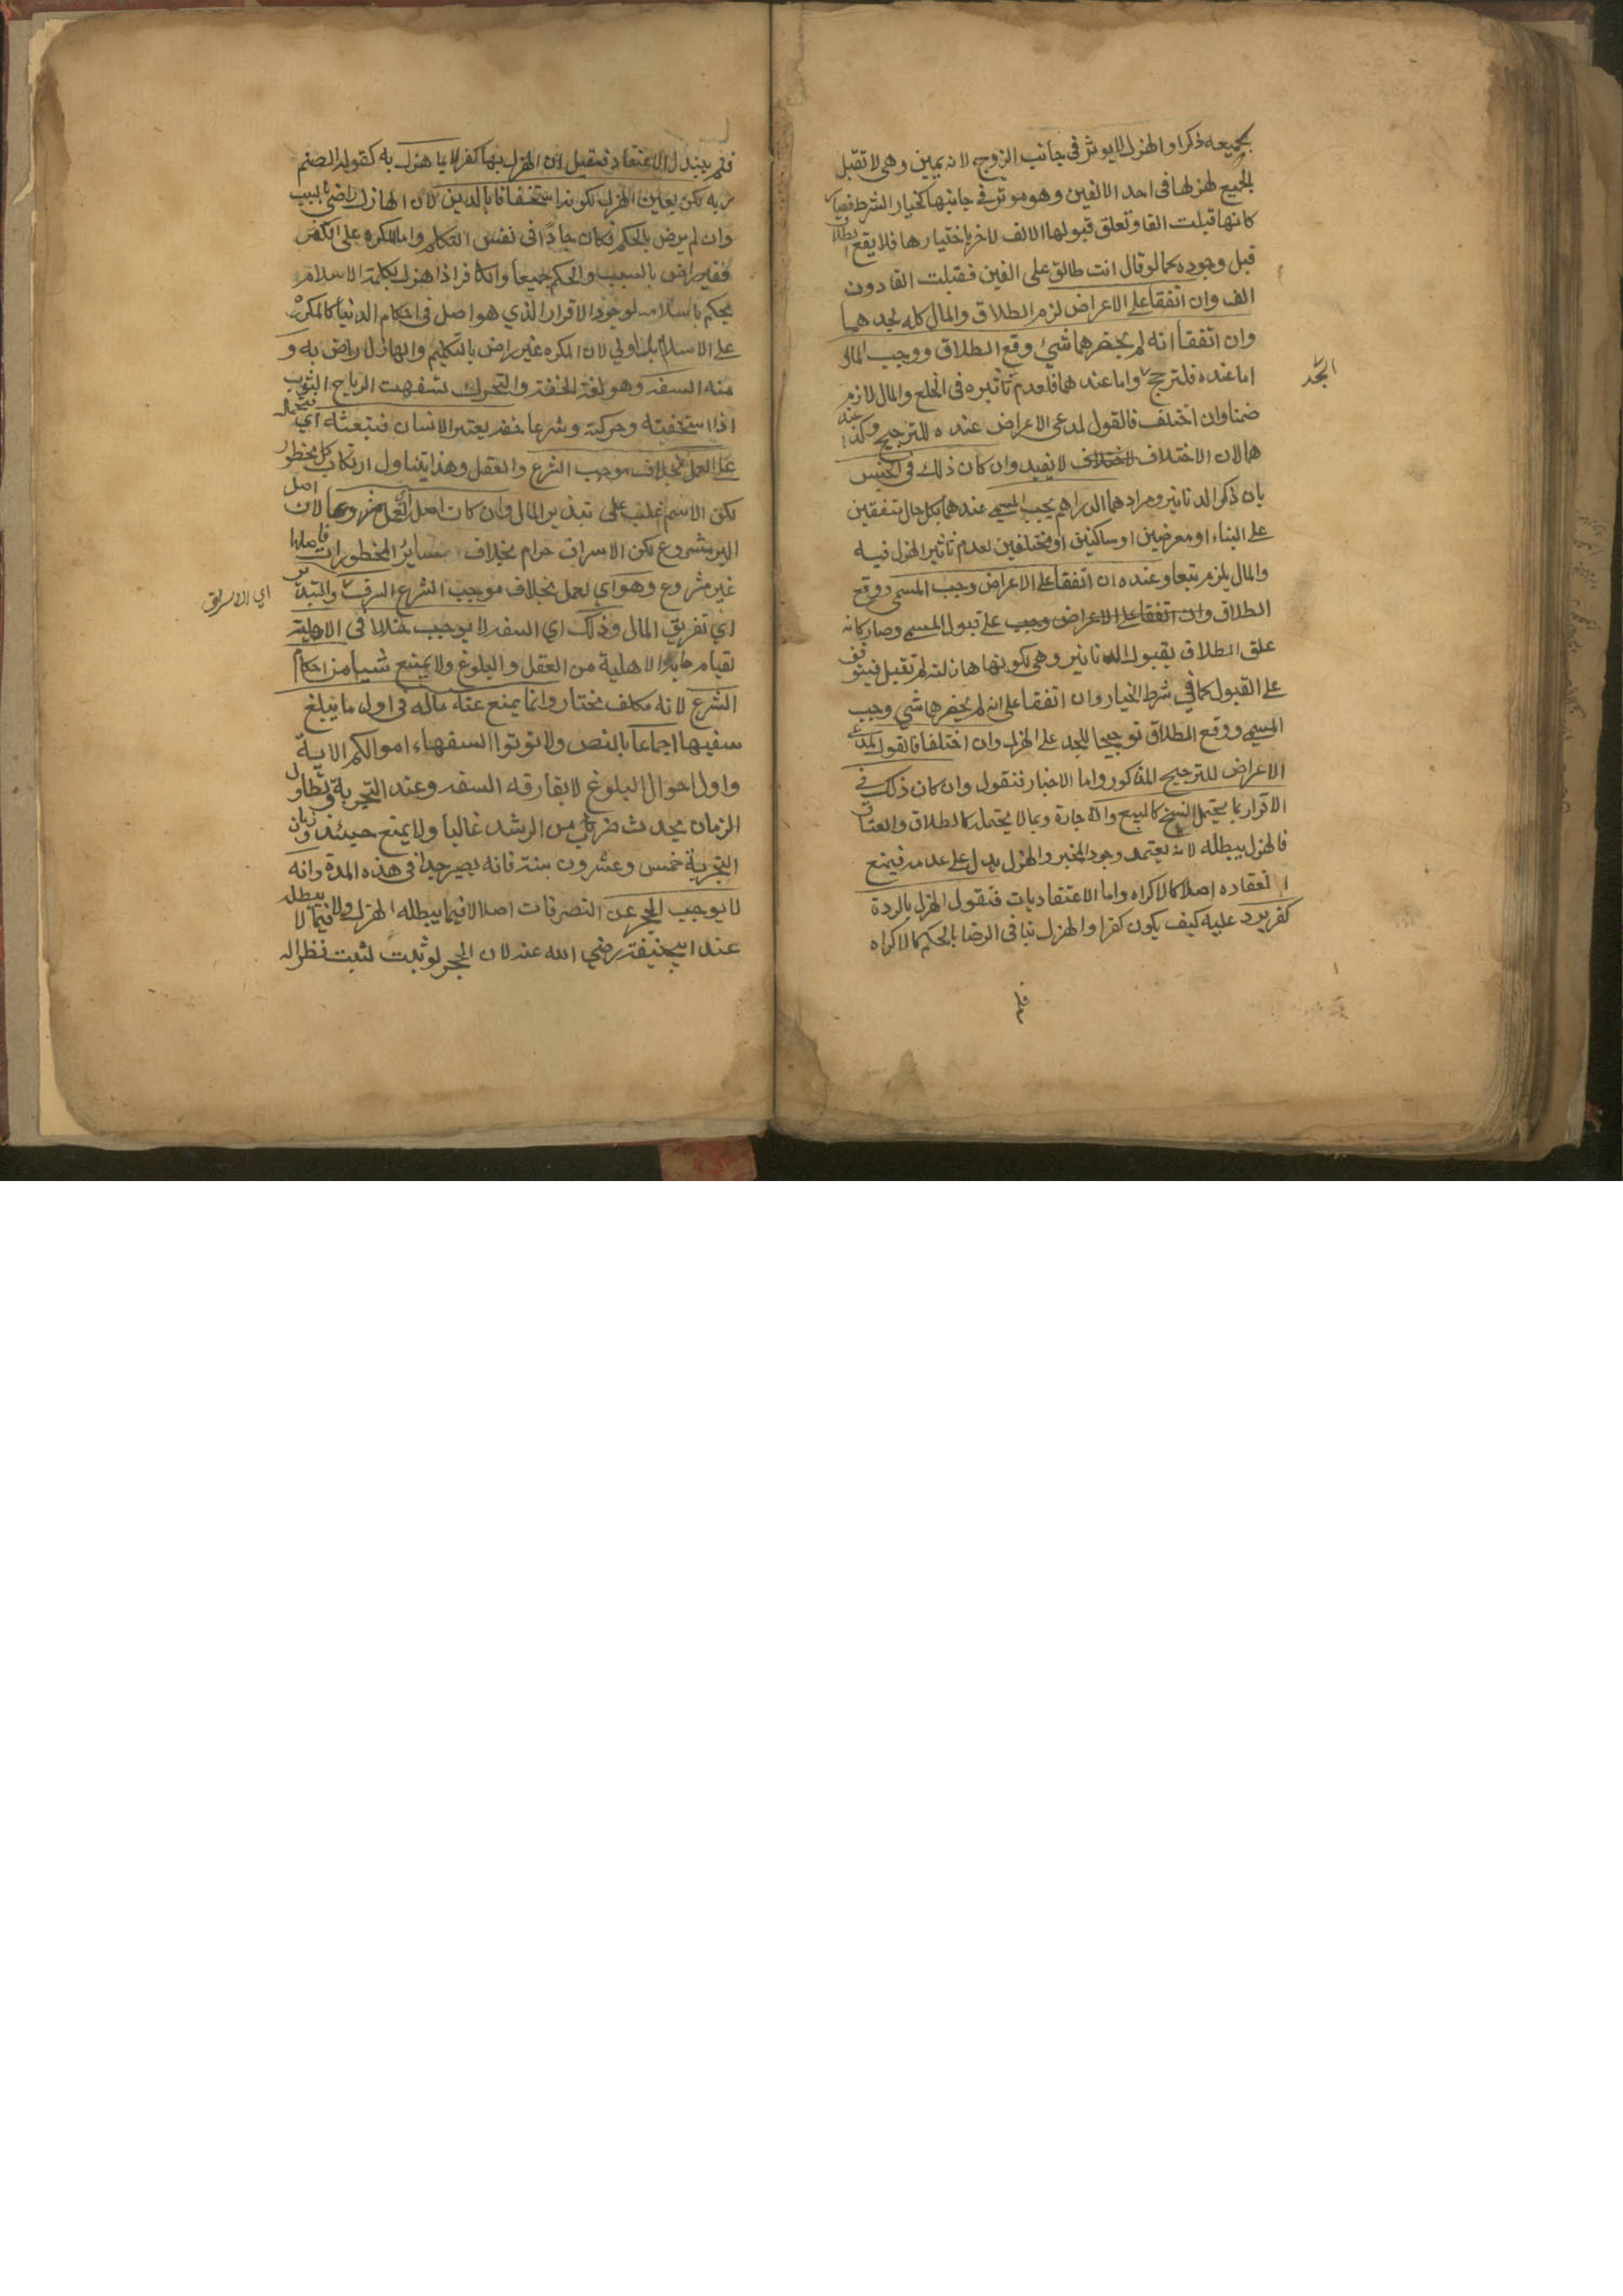 بجميعه ذكرا والهزل لا يوثر فى جانب الزوج لانه يمين وهى لا تقبل
الجميع لهزلها فى احد الالفين وهو موثر فى جانبها كخيار الشرط فصار
كانها قبلت الفا وتعلق قبولها الالف لاخر باختيارها فلا يقع الطلاق
قبل وجوده كما لو قال انت طالق على الفين فقبلت الفا دون
الف وان اتفقا على الاعراض لزم الطلاق والمال كله لجدهما
وان اتفقا انه لم يحضرهما شئ وقع الطلاق ووجب المال
اما عنده فلترجح واما عندهما فلعدم تاثيره فى الخلع والمال لازم
الجد
ضمنا وان اختلف فالقول لمدعى الاعراض عنده للترجيح وكذا عنه
هما لان الاختلاف لا يفيد وان كان ذلك فى الجنس
بان ذكرا الدنانير ومرادهما الدراهم يجب المسمى عندهما بكل حال متفقين
على البناء او معرضين او ساكتين او مختلفين لعدم تاثير الهزل فيه
والمال يلزم تبعا وعنده ان اتفقا على الاعراض وجب المسمى ووقع
الطلاق وان اتفقا على الاعراض وجب على قبول المسمى وصار كانه
علق الطلاق بقبول الدنانير وهى بكونها هازلة لم تقبل فيتوقف
على القبول كما فى شرط الخيار وان اتفقا على انه لم يحضرهما شى وجب
المسمى ووقع الطلاق ترجيحا للجد على الهزل وان اختلفا فالقول لمدعى
الاعراض للترجيح المذكور واما الاخبار فنقول وان كان ذلك فى
الاقرار بما يحتمل الفسخ كالبيع والاجارة وبما لا يحتمله كالطلاق والعتاق
فالهزل يبطله لانه يعتمد وجود المخبر والهزل يدل على عدمه فيمنع
انعقاده اصلا كالاكراه واما الاعتقاديات فنقول الهزل بالردة
كفر يرد عليه كيف يكون كفرا والهزل ينافى الرضا بالحكم كالاكراه
فلم
فلم يبتدل الاعتقاد فقيل ان الهزل بها كفر لا بما هزل به كقوله الصنم
ربه لكن بعين الهزل لكونه استخفافا بالدين لان الهازل راضى بالسبب
وان لم يرض بالحكم فكان جادا فى نفس التكلم واما المكره على الكفر
فغير راض بالسبب والحكم جميعا والكافر اذا هزل بكلمة الاسلام
يحكم باسلامه لوجود الاقرار الذي هو اصل فى احكام الدنيا كالمكره
على الاسلام بل اولى لان المكره غير راض بالتكلم والهازل راض به و
منه السفه وهو لغة الخفة والتحرك تسفهت الرياح الثوب
اذا استخفته وحركته وشرعا خفة يعتبر الانسان فتبعثه اي فتحمله
على العمل بخلاف موجب الشرع والعقل وهذا يتناول ارتكاب كل محظور
لكن الاسم غلب على تبذير المال وان كان اصل العمل مشروعا لان اصل
البر مشروع لكن الاسراف حرام بخلاف سائر المحظورات فاصلها
غير مشروع وهو اي لعمل بخلاف موجب الشرع السرف والتبذير
اي الاسراف
اي تفريق المال وذلك اي السفه لا يوجب خللا فى الاهلية
لقيام ما به الاهلية من العقل والبلوغ ولا يمنع شيا من احكام
الشرع لانه مكلف مختار وانما يمنع عنه ماله فى اول ما يبلغ
سفيها اجماعا بالنص ولا توتوا السفهاء اموالكم الاية
واول احوال البلوغ لا يفارقه السفه وعند التجربة وتطاول
الزمان يحدث ضرب من الرشد غالبا ولا يمنع حينئذ وزمان
التجربة خمس وعشرون سنة فانه يصير جدا فى هذه المدة وانه
لا يوجب الحجر عن التصرفات اصلا لا فيما يبطله الهزل ولا فيما لا يبطله
عند ابى حنيفة رضي الله عنه لان الحجر لو ثبت لثبت نظرا له